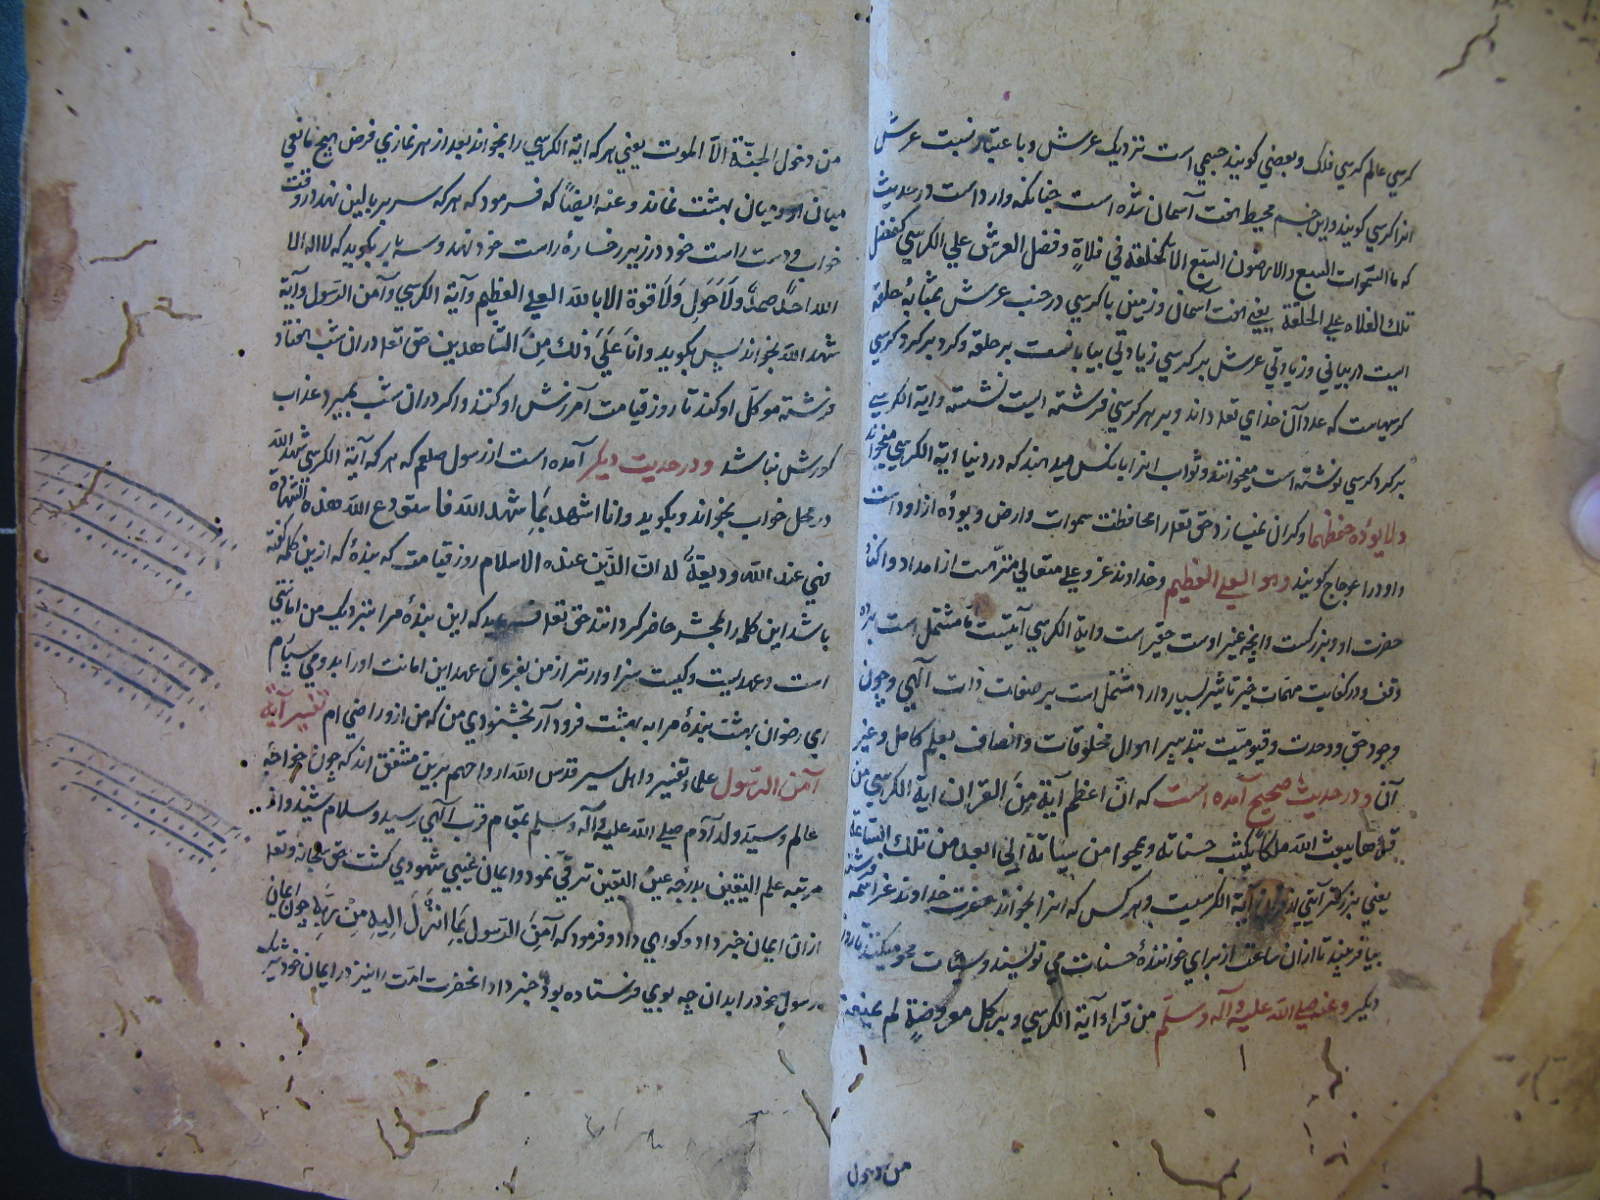 كرسي عالم كرسي فلك و بعضي كويند جسمي است نزديك عرش و باعتبار نسبت عرش
انرا كرسي كويند و اين جسم محيط هفت آسمان شده است چنانكه وارد است در حديث
كه ما السموات السبع والارضون السبع الا كحلقة في فلاة و فضل العرش علي الكرسي كفضل
تلك الفلاة علي الحلقة يعني هفت آسمان و زمين با كرسي در جنب عرش بمثابه حلقه
ايست در بياباني و زيادتي عرش بر كرسي زيادتي بيابانست بر حلقه و كرد بر كرد كرسي
كرسيهاست كه عدد آن خداي تعا داند و بر هر كرسي فرشته ايست نشسته و اية الكرسي
بر كرد كرسي نوشته است ميخوانند و ثواب انرا بانكس ميدهند كه در دنيا اية الكرسي ميخواند
ولا يؤده حفظهما و كران نميسازد حق تعا را محافظت سموات و ارض و يوده از اود است
و اود را اعوجاج كويند وهو العلي العظيم و خداوند عز و علي متعالي منزه است از امداد و
حضرت او و بزركست و انچه غير اوست حقير است و اية الكرسي آيتيست كه مشتمل است بر ده
وقف و در كفايت مهمات خير تاثير بسيار دارد مشتمل است بر صفات ذات آلهي و چون
وجود حق و وحدت و قيوميت بتدبير احوال مخلوقات و اتصاف بعلم كامل و غير
آن و در حديث صحيح آمده است كه ان اعظم آية من القران اية الكرسي من
قرأها يبعث الله ملكا يكتب حسناته و يمحوا من سيآته الي الغد من تلك الساعة
يعني بزركتر آيتي از قران آية الكرسيست و هر كس كه انرا بخواند حضرت خداوند عز اسمه فرشته
بيافريند تا ازان ساعت از براي خواننده حسنات مي نويسند و سيئات محو ميكنند تا روز
ديكر و عنه صلي الله عليه و آله و سلم من قراء آية الكرسي و بر كل مفروضة لم يمنعه
من دخول
من دخول الجنة الا الموت يعني هر كه اية الكرسي را بخواند بعد از هر نمازي فرض هيچ مانعي
ميان او و ميان بهشت نماند و عنه ايضاً كه فرمود كه هر كه سر بر بالين نهد در وقت
خواب و دست راست خود در زير رخساره راست خود نهد و سه بار بكويد كه لا اله الا
الله احداً صمداً ولا حول ولا قوة الا بالله العلي العظيم و آية الكرسي و آمن الرسول و آية
شهد الله بخواند پس بكويد و انا علي ذلك من الشاهدين حق تعا در ان شب هفتاد
فرشته موكل او كند تا روز قيامت آمرزش او كنند و اكر در ان شب بميرد عذاب
كورش نباشد و در حديث ديكر آمده است از رسول صلعم كه هر كه آية الكرسي شهد الله
در محل خواب بخواند و بكويد و انا اشهد بما شهد الله فاستودع الله هذه الشهادة
فهي عند الله وديعة له ان الدين عند الله الاسلام روز قيامت كه بنده كه ازين كلمه كفته
باشد اين كلمه را بمحشر حاضر كردانند حق تعا فرمايد كه اين بنده مرا بنزديك من امانتي
است و عهديست و كيست سزاوارتر از من بفرمان عهد اين امانت او را بدو مي سپارم
اي رضوان بهشت بنده مرا به بهشت فرود آر بخشنودي من كه من ازو راضي ام تفسير آية
آمن الرسول علماء تفسير و اهل سير قدس الله ارواحهم برين متفق اند كه چون خواجه
عالم و سيد ولد آدم صلي الله عليه و آله و سلم بمقام قرب آلهي رسيد و سلام شنيد و از
مرتبه علم اليقين بدرجه عين اليقين ترقي نمود و ايمان غيبي شهودي كشت حق سبحانه و تعا
ازان ايمان خبر داد و كواهي داد و فرمود كه آمن الرسول بما انزل اليه من ربه چون ايمان
رسول خود را بدان چه بوي فرستاده بود خبر داد انحضرت امت را نيز در ايمان خود شريك